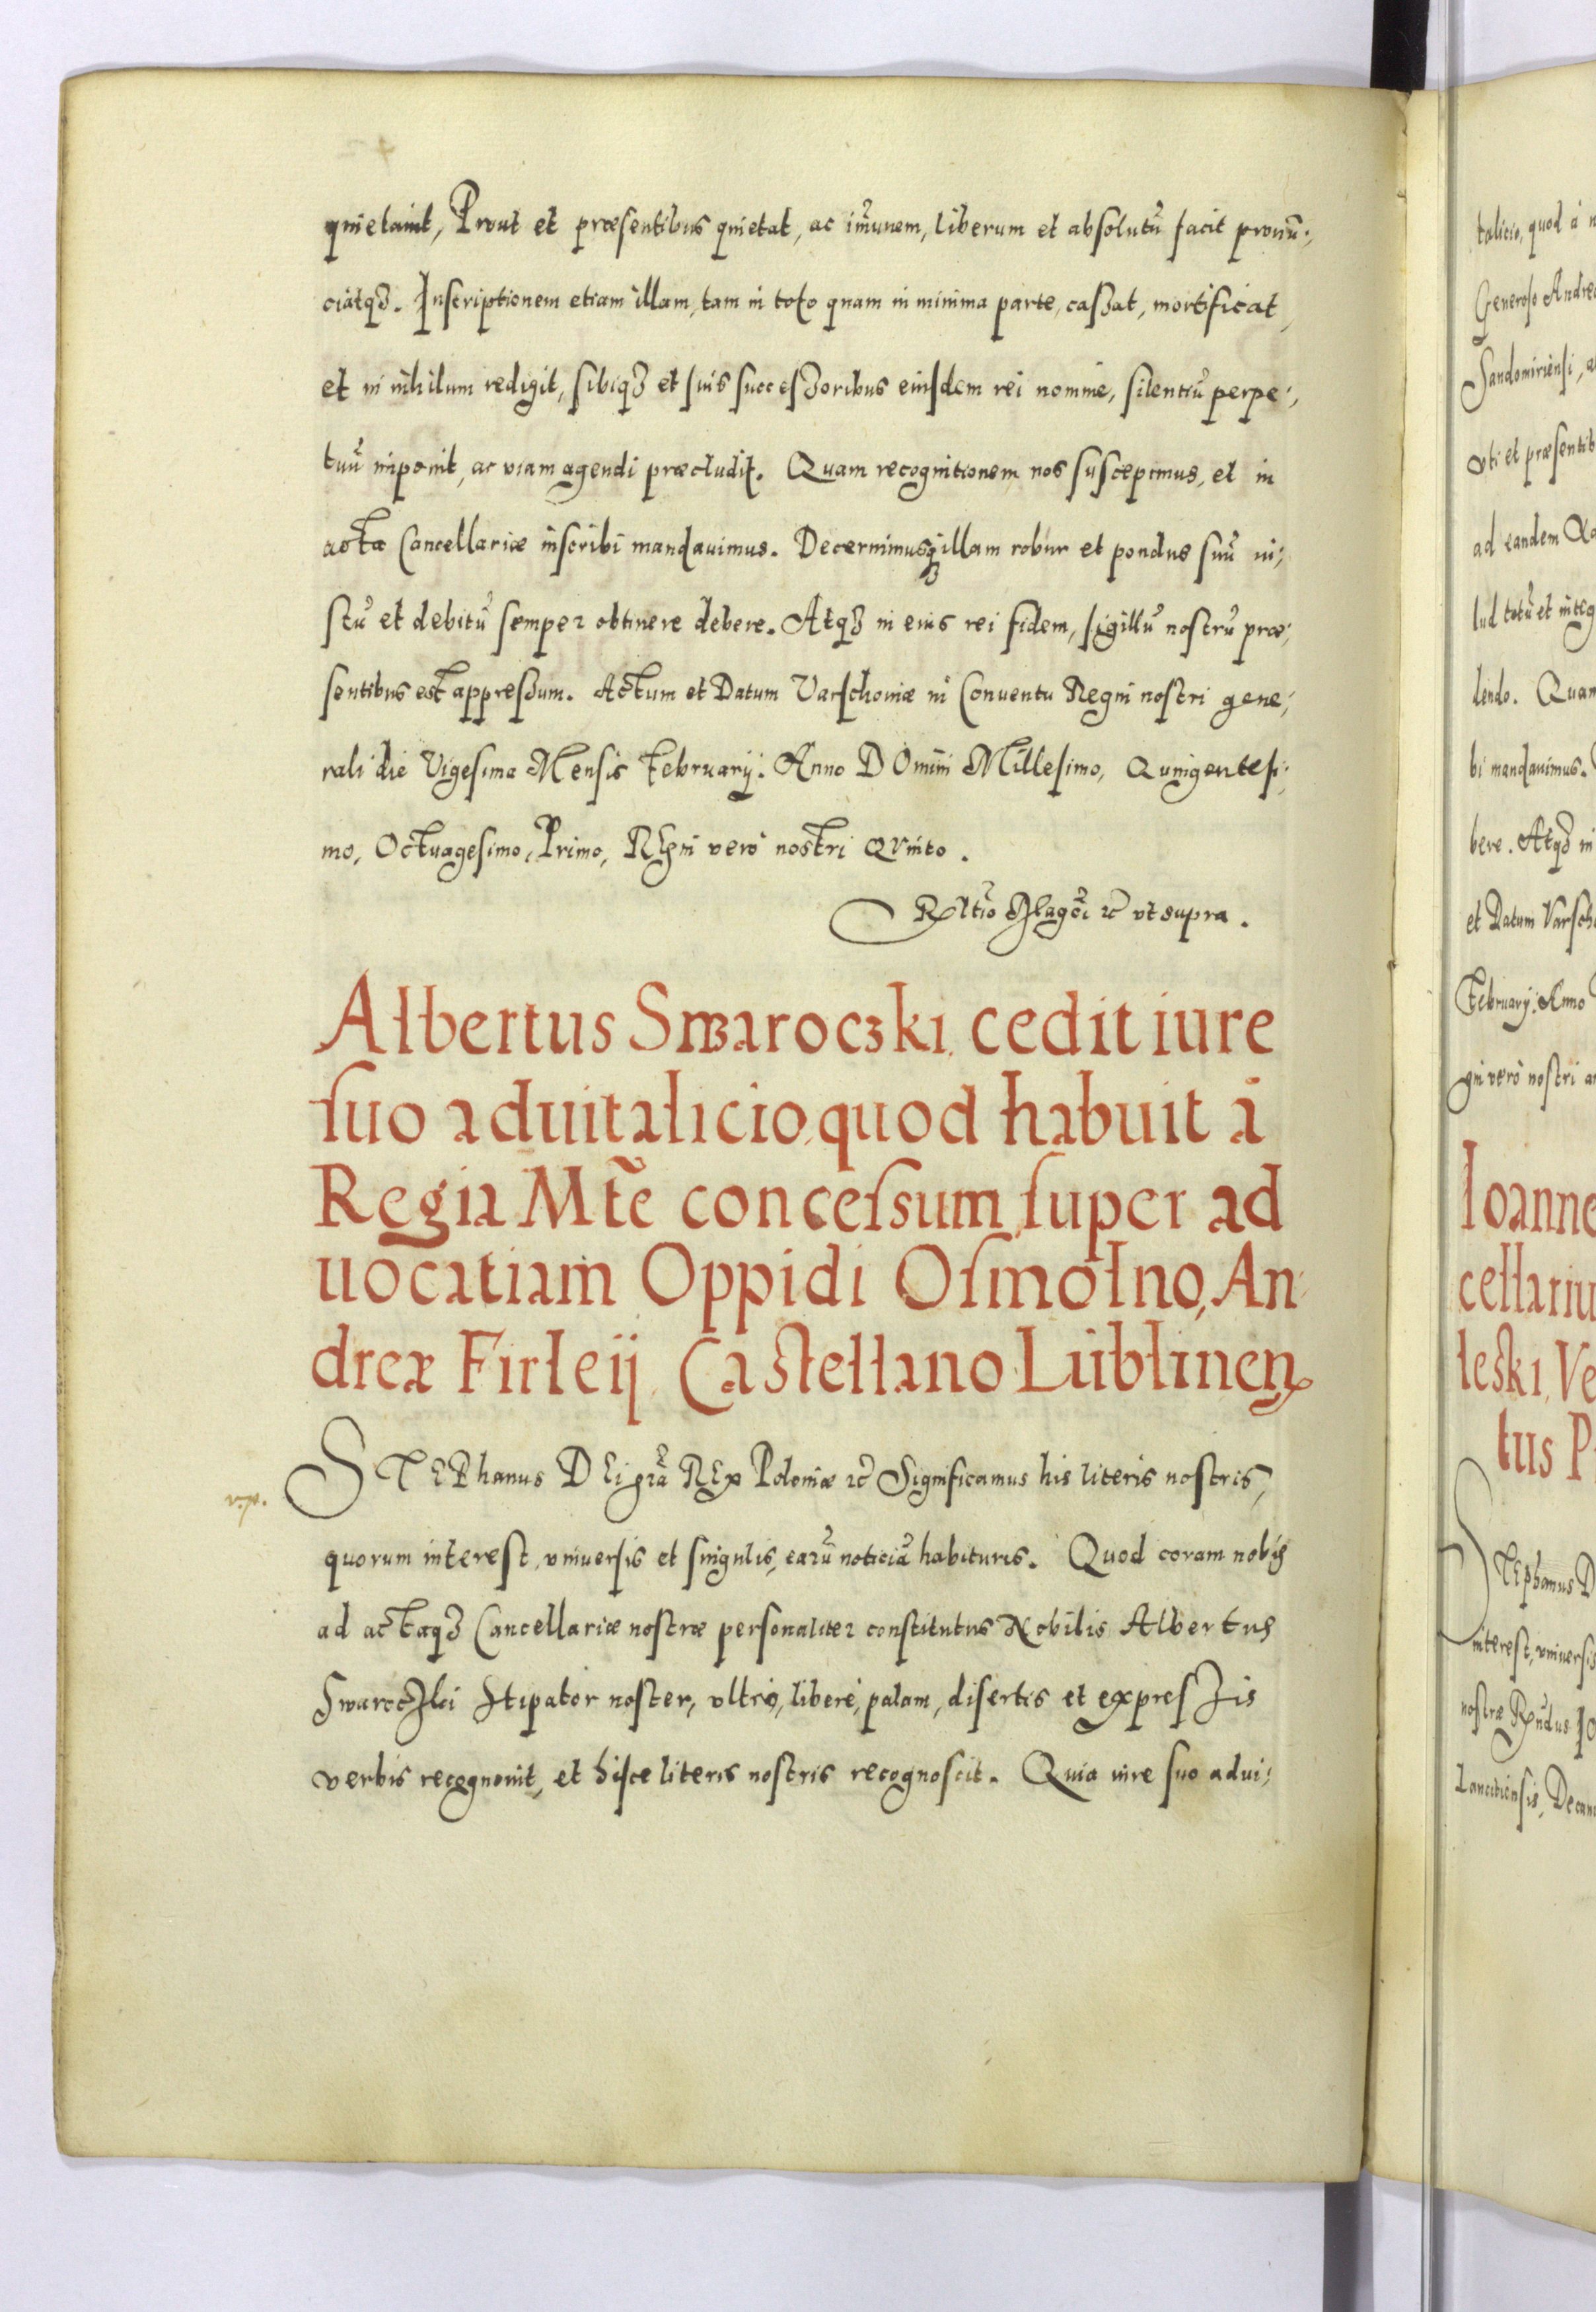 quietauit, Prout et præsentibus quietat, ac im̃unem, liberum et absolutũ facit pronũ:,
ciatqȝ. Inscriptionem etiam illam, tam in toto quam in minima parte, casßat, mortificat,
et in nihilum redigit, sibiqȝ et suis succesßoribus eiusdem rei nomine, silentiũ perpe:,
tuũ imponit, ac viam agendi præcludit. Quam recognitionem nos suscepimus, et in
acta Cancellariæ inscribi mandauimus. Decernimusqȝ illam robur et pondus suũ iu:,
stũ et debitũ semper obtinere debere. Atqȝ in eius rei fidem, sigillũ nostrũ præ:,
sentibus est appresßum. Actum et Datum Varschouiæ in Conuentu Regni nostri gene:,
rali die Vigesima Mensis Februarij. Anno DOmini Millesimo, Quingentesi:,
mo, Octuagesimo, Primo, REgni verò nostri QVinto.
ut supra.
Albertus Swaroczki, cedit iure
suo aduitalicio, quod habuit à
Regia Mt̃e concessum, super ad
uocatiam Oppidi Osmolno, An:
dreæ Firleij, Castellano Lublineñ
STEPhanus DEi gr̃a REx Poloniæ ⁊c̃ Significamus his literis nostris,
quorum interest, vniuersis et singulis, earũ noticiã habituris. Quod coram nobis
ad actaqȝ Cancellariæ nostræ personaliter constitutus Nobilis Albertus
Swaroczki Stipator noster, vltrò, liberè, palam, disertis et expressis
verbis recognouit, et hisce literis nostris recognoscit. Quia iure suo adui:,
talicio, quod à
Generoso Andreæ
Sandomiriensi,
vti et præsentib
ad eandem
lud totũ et integ
lendo. Quam
bi mandauimus.
bere. Atqȝ in
et Datum Varsch
Februarij. Anno
gni verò nostri
Ioanne
cellariu
leski, Ve
tus P
STEphanus D
interest, vniuersis
nostræ Rñdus Io
Lanciciensis, Decan